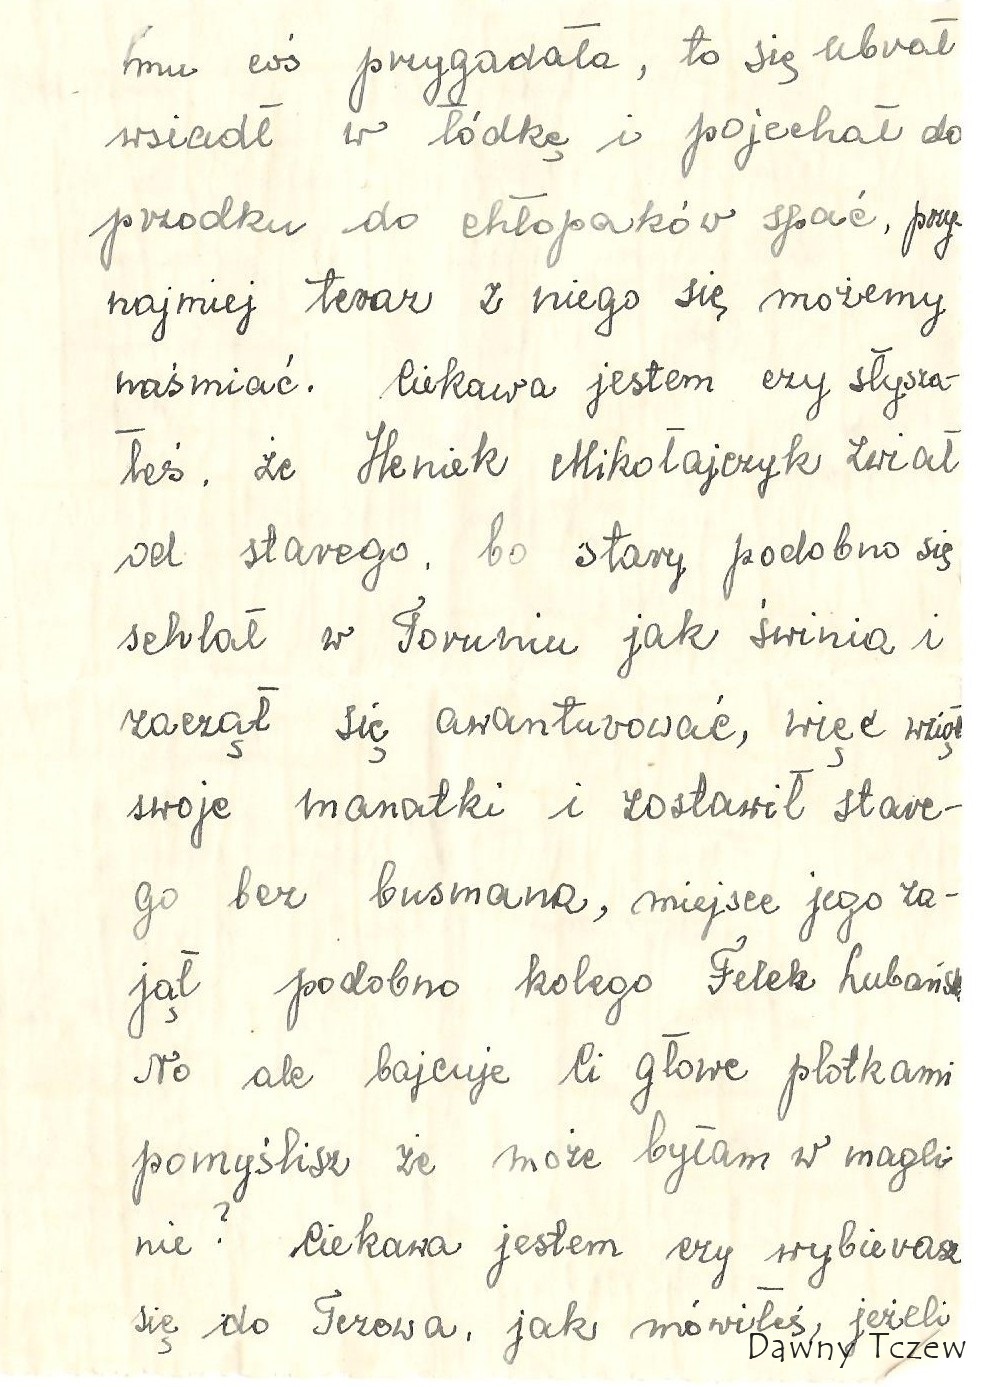 hmu coś przygadała, to się ubrał
wsiadł w łódkę i pojechał do
przodku do chłopaków spać, przy-
najmiej teraz z niego się możemy
naśmiać. Ciekawa jestem czy słysza-
łeś, że Heniek Mikołajczyk zwiał
od starego, bo stary podobno się
schlał w Toruniu jak świnia i
zaczął się awanturować, więc wziął
swoje manatki i zostawił stare-
go bez busmana, miejsce jego za-
jął podobno kolego Felek Lubańsk
No ale bajcuje Ci głowe plotkami
pomyślisz że może byłam w magli
nie? Ciekawa jestem czy wybierasz
się do Tczewa, jak mówiłeś, jeżeli
Dawny Tczew